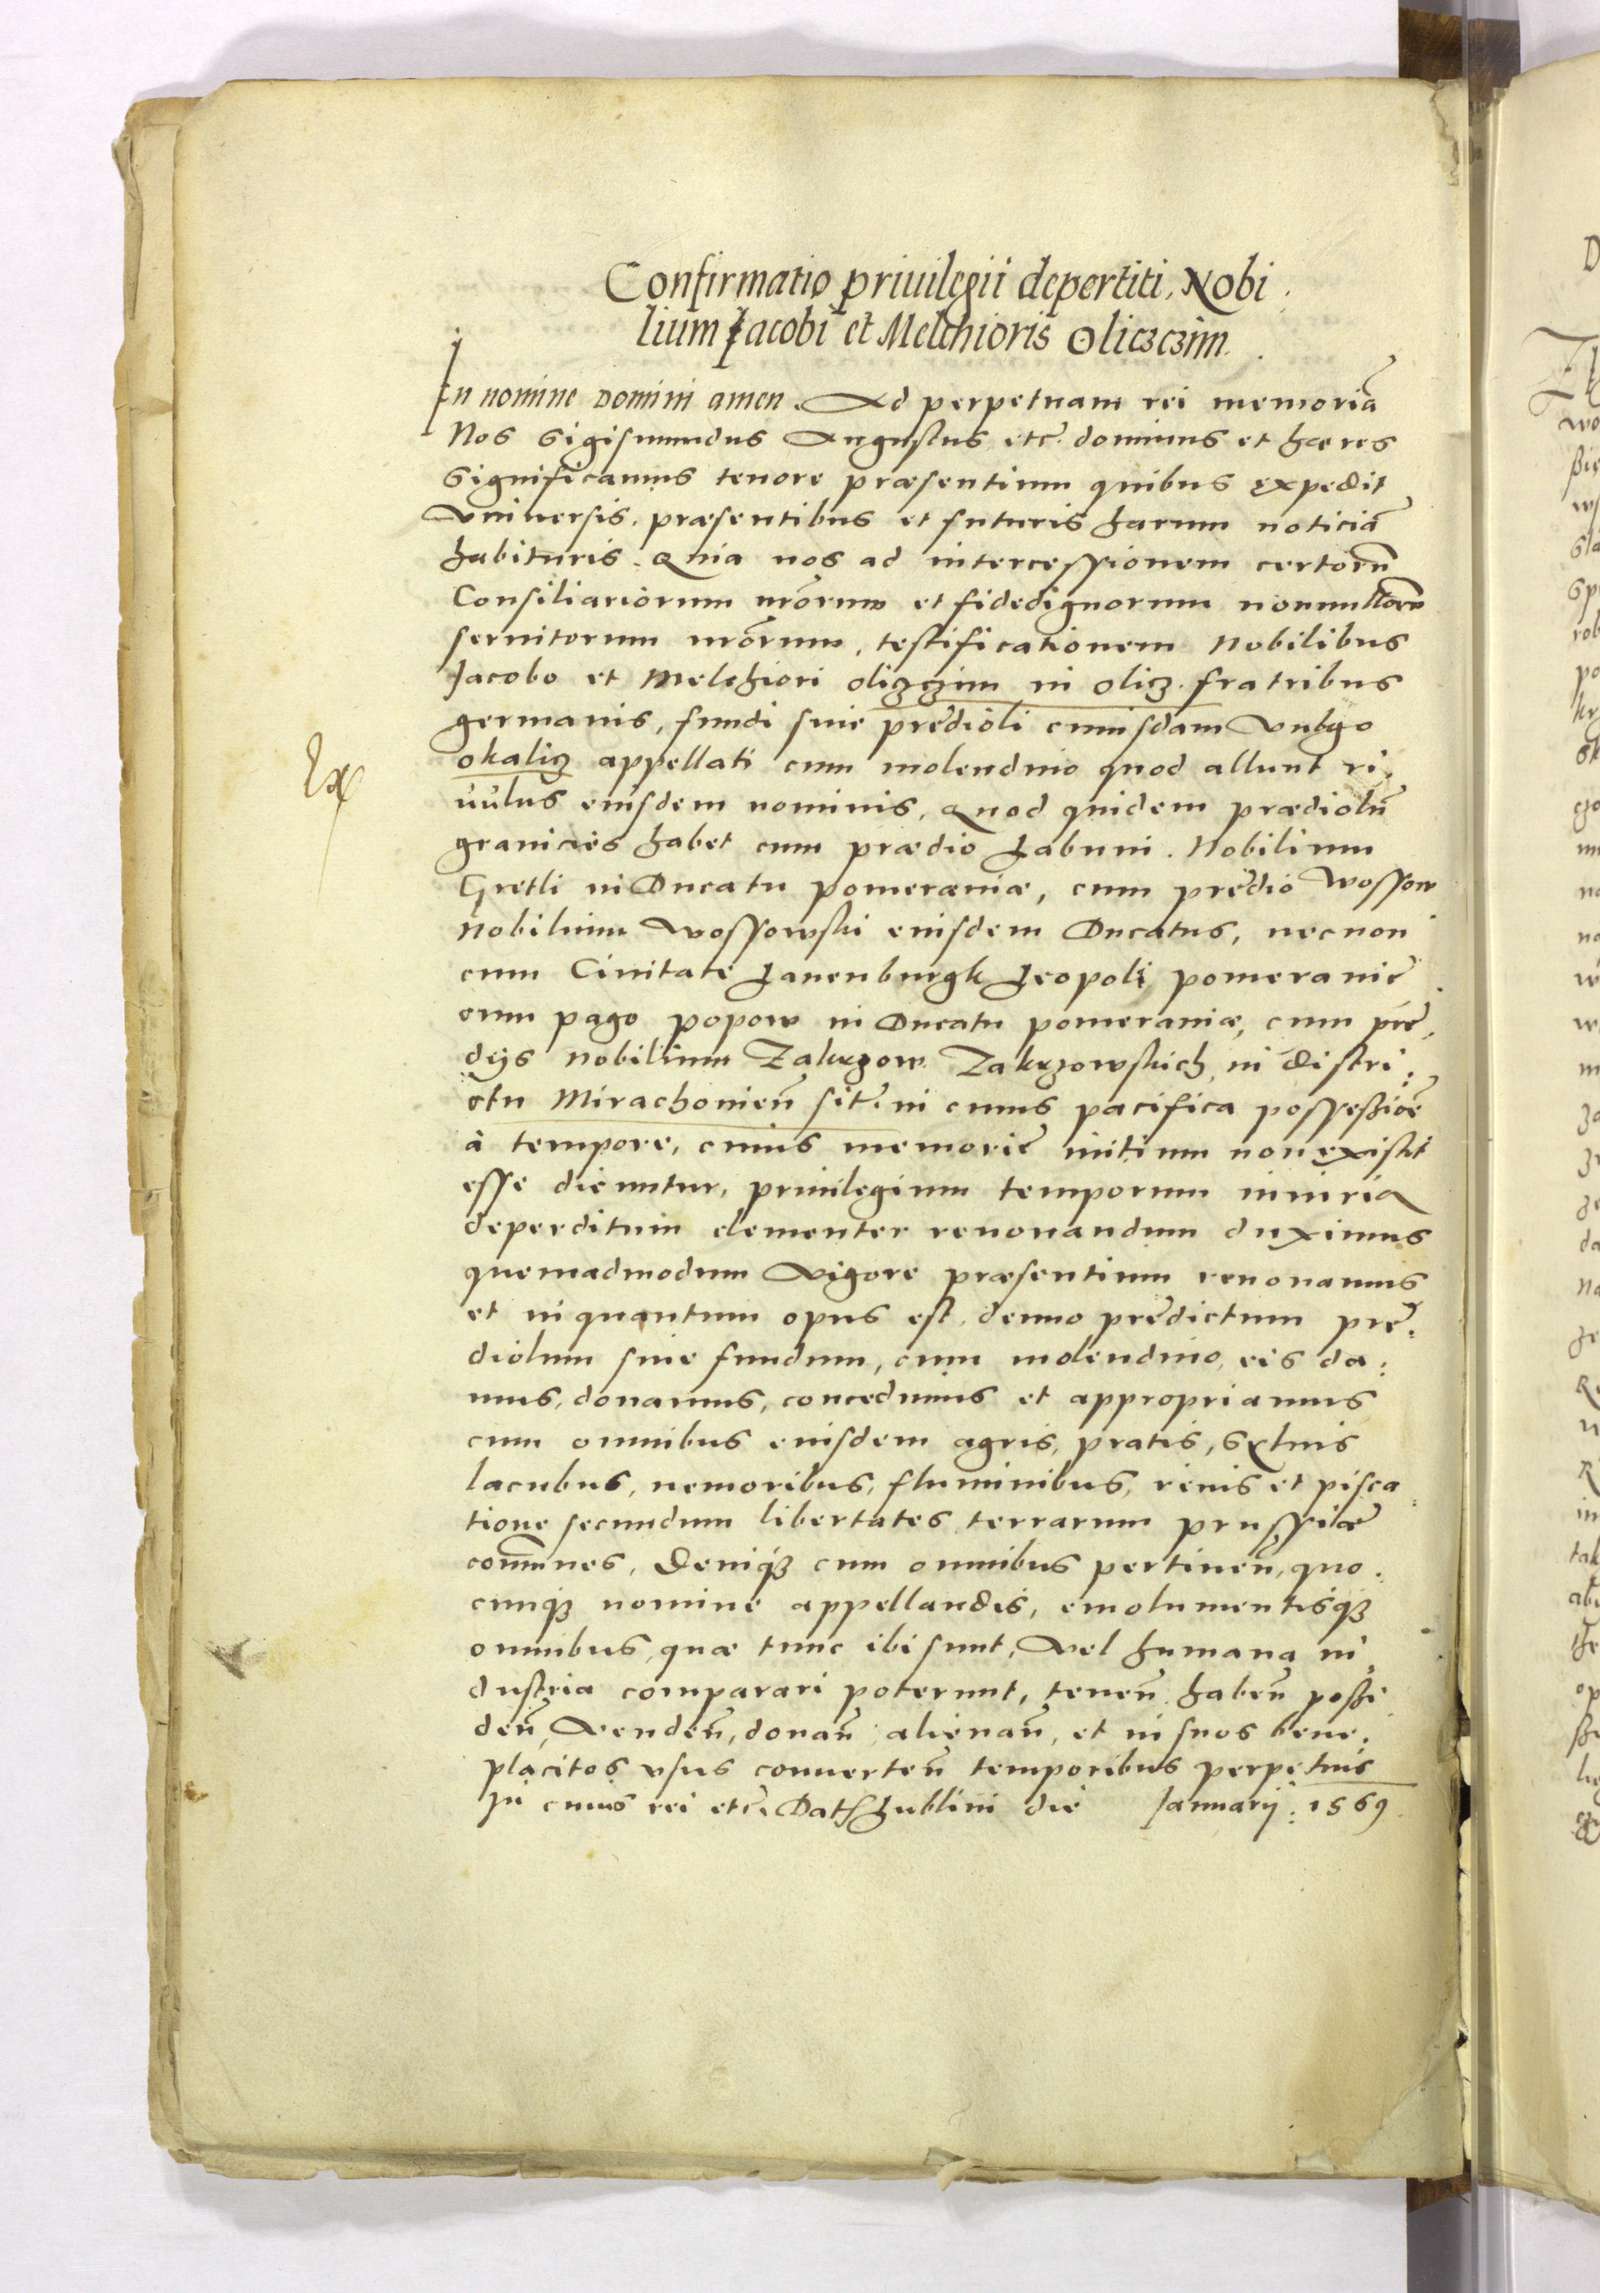 Confirmatio priuilegii depertiti, Nobi
lium Jacobi et Melchioris Oliczczim.
In nomine Domini amen. Ad perpetuam rei memoriã
Nos Sigismundus Augustus etc̃. dominus et hæres
Significamus tenore præsentium quibus expedit
vniuersis, præsentibus et futuris harum noticiã
habituris. Quia nos ad intercessionem certorũ
Consiliariorum nr̃orum et fidedignorum nonnullorũ
seruitorum nr̃orum, testificationem Nobilibus
Jacobo et Melchiori olizczim in olicz. fratribus
germanis, fundi siue prędioli cuiusdam vulgo
okalicz appellati cum molendino quod alluit ri,
uulus eiusdem nominis, Quod quidem prædiolũ
granicies habet cum prædio Labuni. Nobilium
Gretli in Ducatu pomeraniæ, cum prędio Wossow
Nobilium Wossowski eiusdem Ducatus, necnon
cum Ciuitate Lauenburgk Leopoli pomeranię
cum pago popow in Ducatu pomeraniæ, cum prę,
dijs nobilium Zakrzow Zakrzowskich, in distri:
ctu Mirachonieñ sit̃. in cuius pacifica possessiõe
à tempore, cuius memorię initium non existit
esse dicuntur, priuilegium temporum iniuria
deperditum clementer renouandum duximus
quemadmodum vigore præsentium renouamus
et in quantum opus est, denuo prędictum prę:
diolum siue fundum, cum molendino, eis da:
mus, donamus, concedimus et appropriamus
cum omnibus eiusdem agris, pratis, syluis
lacubus, nemoribus, fluminibus, riuis et pisca:
tione secundum libertates terrarum prussiæ
com̃unes, Deniq3 cum omnibus pertineñ, quo:
cunq3 nomine appellandis, emolumentisq3
omnibus, quæ tunc ibi sunt, vel humana in
dustria comparari poterunt, teneñ habeñ possi
deñ, vendeñ, donañ alienañ, et in suos bene:
placitos vsus conuerteñ temporibus perpetuis
In cuius rei etc̃. Dat̃ Lublini die Januarij: 1569.
Ex